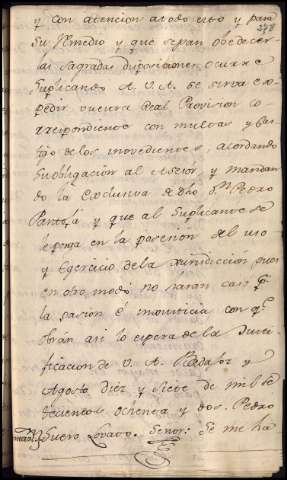 278
y con atencion a todo esto y para
su Remedio y que sepan obedecer
las sagradas disposiciones ocurre
suplicando A. V. A. se sirva ex
pedir vuestra Real Provision co
rrespondiente con multas y cas
tigo de los inovedientes, acordando
su obligacion al Asesor, y mandan
do la exclusiva de dho Dn Pedro
y que al suplicante se
le ponga en la posesion del uso
y Egercicio de la Jurisdiccion pues
en otro modo no saran caso pr
la pasion è injusticia con qe
obran asi lo espera de la Justi
ficacion de V. A. Badajoz y
Agosto diez y siete de mil se
tecientos ochenta y dos. Pedro
Suero Lovato. Señor: Se me ha